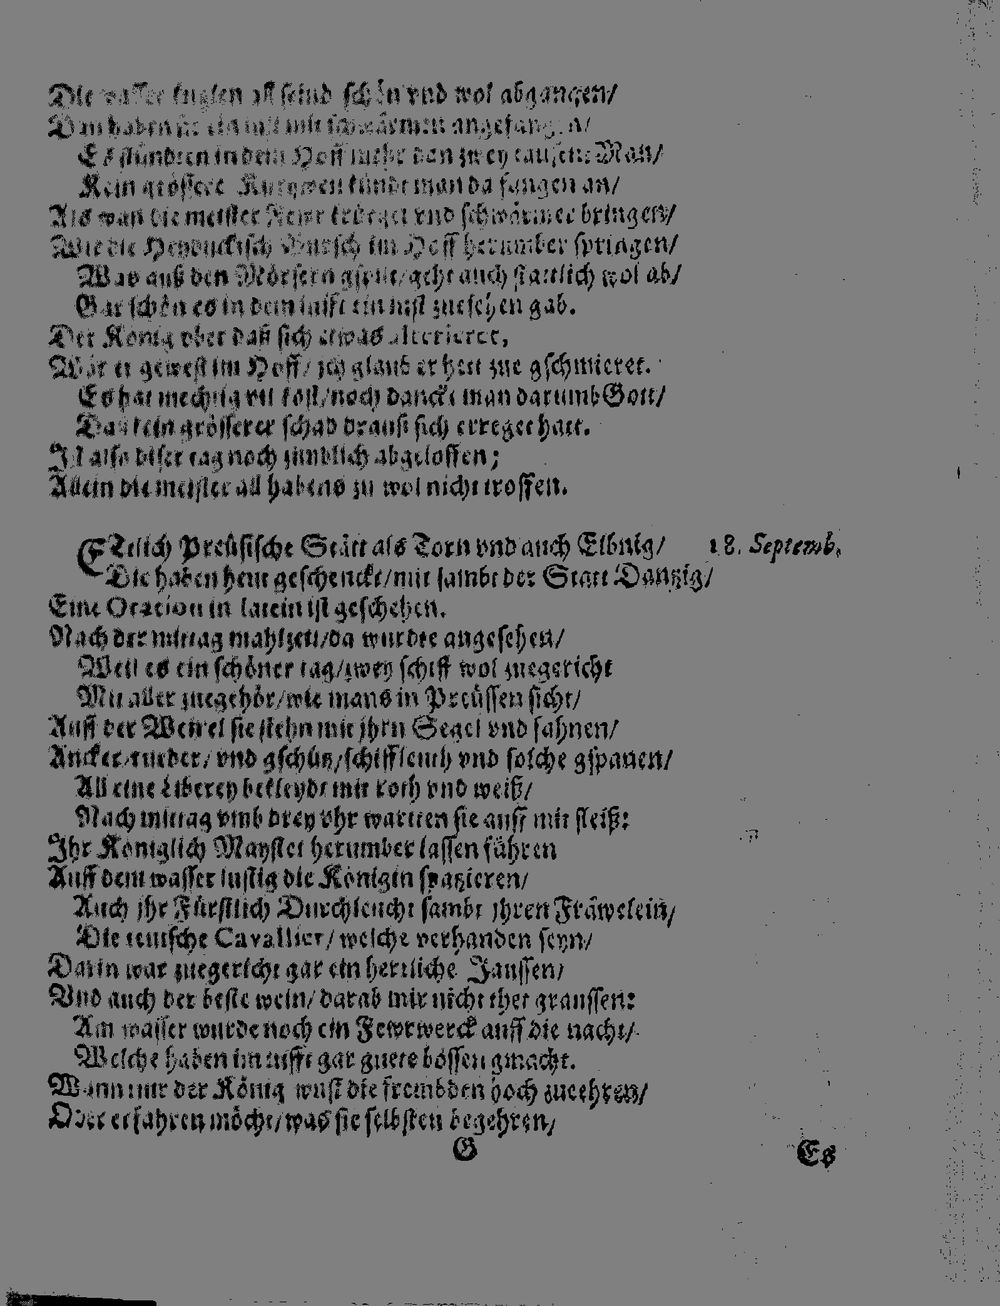 Die wasser kuglen all seind schön vnd wol abgangen/
haben mit schwärmen angefangen/
Es stundten in dem Hoff mehr dan zwey tausent Man/
Kein grössere Kurtzweil kündt man da fangen an/
Als wan die meister Fewr vnd schwärmer bringen/
Wie die Heyduckisch Pursch im Hoff herumber springen/
Was auß den Mörsern gspilt/geht auch stattlich wol ab/
Gar schön es in dem lufft ein lust zuesehen gab.
Der König vber daß sich etwas alterieret,
Wär er gewest im Hoff/ ich glaub er hett zue gschmieret.
Es hat mechtig vil kost/noch danckt man darumb Gott/
Das kein grösserer schad drauß sich erreget hatt.
Ist also diser tag noch zimblich abgeloffen;
Allein die meister all habens zu wol nicht troffen.
ETtlich Preüsische Stätt als Torn vnd auch Elbnig/ 18. Septemb.
Die haben heut geschenckt/mit sambt der Statt Dantzig/
Eine Oration in latein ist geschehen.
Nach der mittag mahlzeit/da wurdte angesehen/
Weil es ein schöner tag/zwey schiff wol zuegericht
Mit aller zuegehör/wie mans in Preüssen sicht/
Auff der Weixel sie stehn mit jhrn Segel vnd fahnen/
Ancker/rueder/ vnd gschütz/schiffleuth vnd solche gspanen/
All eine Liberey bekleydt mit roth vnd weiß/
Nach mittag vmb drey vhr wartten sie auff mit fleiß:
Ihr Königlich Maystet herumber lassen führen
Auff dem wasser lustig die Königin spatzieren/
Auch jhr Fürstlich Durchleucht sambt jhren Fräwelein/
Die teutsche Cavallier/ welche verhanden seyn/
Darin war zuegericht gar ein herrliche Janssen/
Vnd auch der beste wein/ darab mir nicht thet graussen:
Am wasser wurde noch ein Fewrwerck auff die nacht/
Welche haben im lufft gar guete bossen gmacht.
Wann nur der König wust die frembden hoch zuehren/
Oder erfahren möcht/was sie selbsten begehren/
G Es